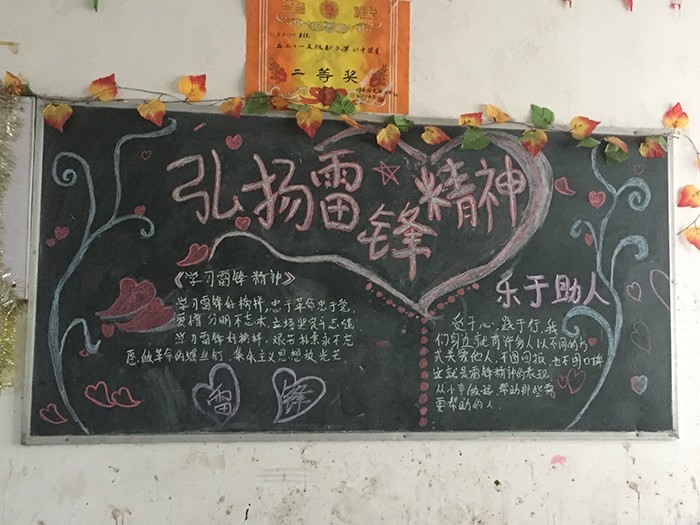 奖状
二等奖
弘扬雷锋精神
《学习雷锋精神》
学习雷锋好榜样,忠于革命忠于党,
爱憎分明不忘本,立场坚定斗志强
学习雷锋好榜样,艰苦朴素永不忘
愿做革命的螺丝钉,集体主义思想放光芒
雷锋
乐于助人
受于心,践于行,我
们身边就有许多人以不同的方
式关爱他人,不图回报,也不问得
这就是雷锋精神的表现,
从小事做起,帮助那些需
要帮助的人